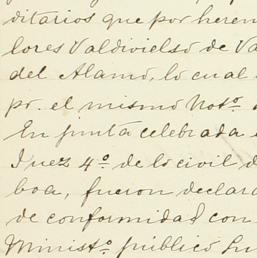 ditarios que por heren
lores Valdivielso de Va
del Alamo, lo cual
pr. el mismo Notº
En junta celebrada
Juez 4º de lo civil d
boa, fueron declara
de conformidad con
Ministº público Su